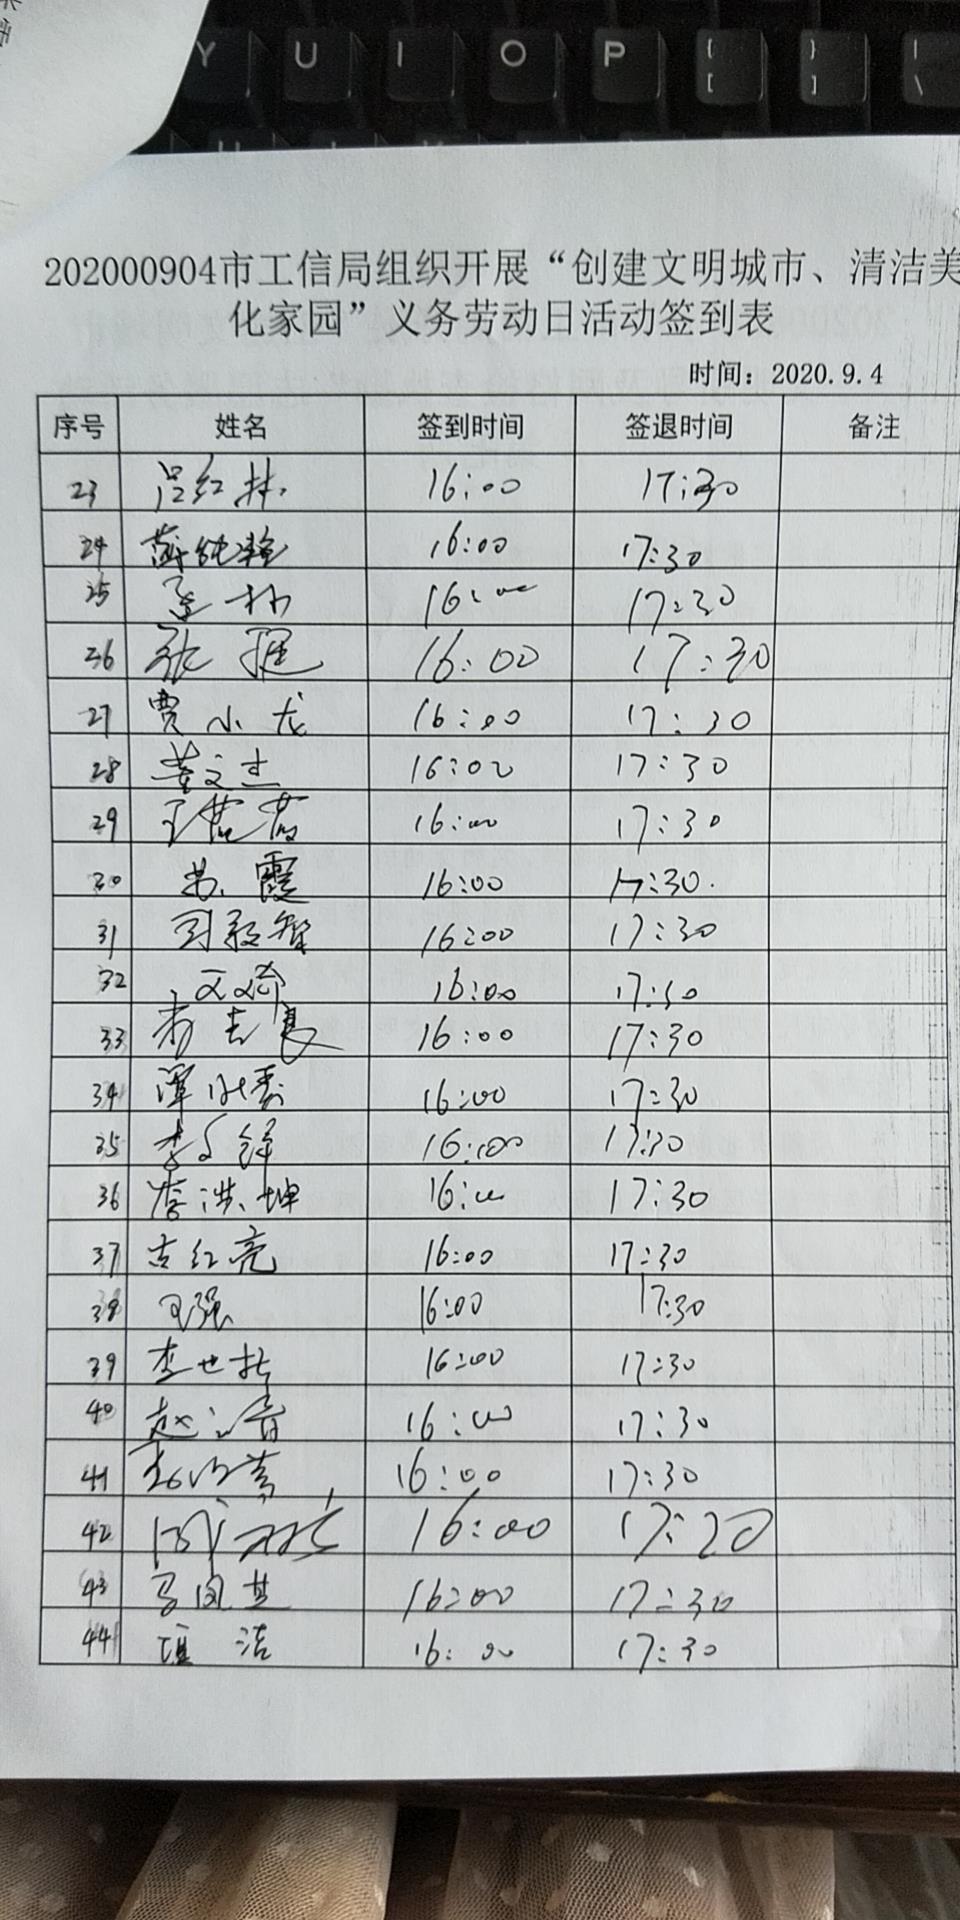 Y U I O P { [ } ] | \
202000904市工信局组织开展“创建文明城市、清洁美
化家园”义务劳动日活动签到表
时间：2020.9.4
序号 姓名 签到时间 签退时间 备注
23 吕红林 16:00 17:30
24 16:00 17:30
25 16:00 17:30
26 张 16:00 17:30
27 贾小龙 16:00 17:30
28 董文杰 16:00 17:30
29 王 16:00 17:30
30 苏霞 16:00 17:30
31 16:00 17:30
32 16:00 17:30
33 16:00 17:30
34 16:00 17:30
35 李 16:00 17:30
36 李洪坤 16:00 17:30
37 古红亮 16:00 17:30
38 王强 16:00 17:30
39 李世 16:00 17:30
40 赵 16:00 17:30
41 16:00 17:30
42 16:00 17:20
43 马凤 16:00 17:30
44 洁 16:00 17:30